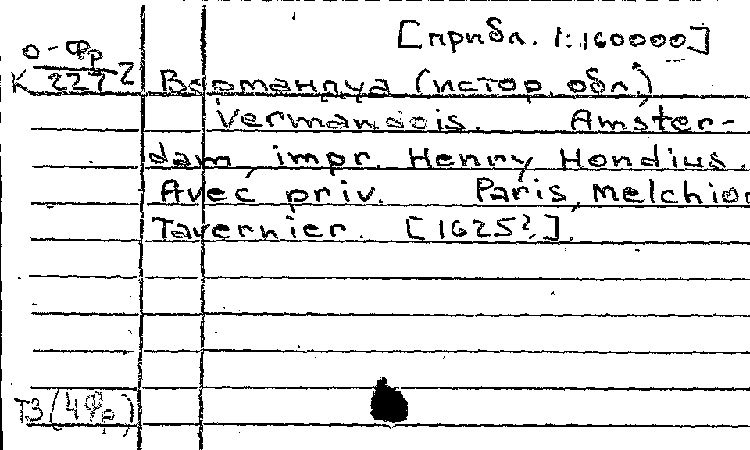 [прибл. 1:160000]
О-Фр
К 227 2
Вермандуа (истор. обл.)
Vermandois. Amster-
dam, impr. Henry Hondius.
Avec priv. Paris, Melchior
Tavernier. [1625?].
Т3(4Фр)